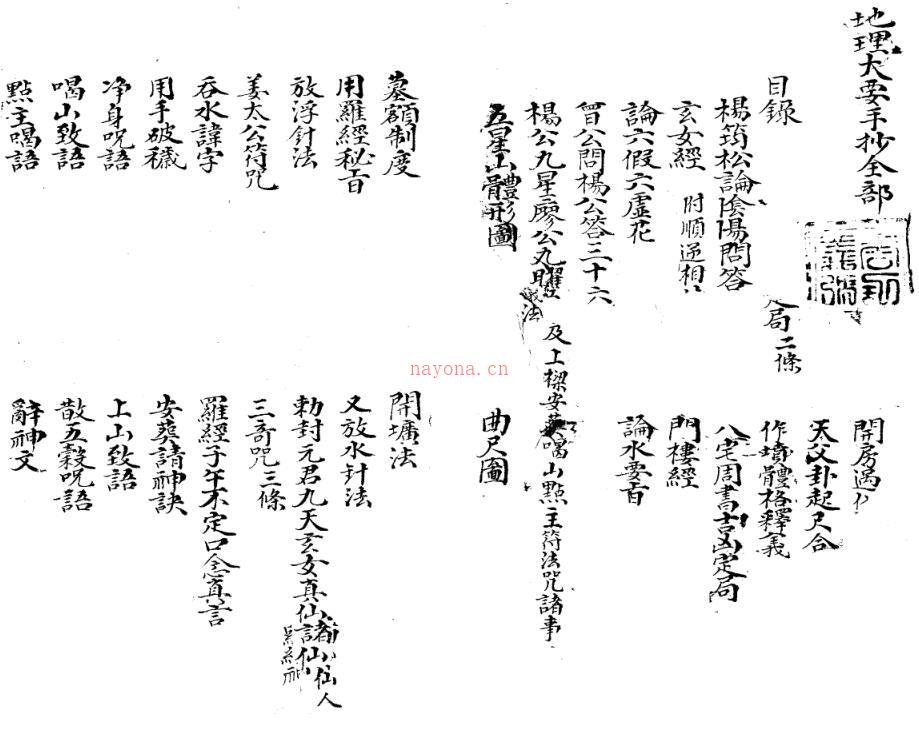 地理大要手抄全部
目錄
楊筠松論陰陽問答
局二條
開房過
玄女經 附順逆相
天父卦起尺合
論六假六虛花
作墳體格釋義
曾公問楊公答三十六
八宅周書吉凶定局
楊公九星廖公九曜
門樓經
及上樑安葬喝山點主符法咒諸事
論水要旨
五星山體形圖
曲尺圖
墓額制度
開壙法
用羅經秘旨
又放水針法
放浮針法
勅封元君九天玄女真仙諸仙仙人
姜太公符咒
三奇咒三條
吞水諱字
羅經子午不定口念真言
用手破穢
安葬請神訣
净身咒語
上山致語
喝山致語
散五穀咒語
點主喝語
辭神文
nayona.cn